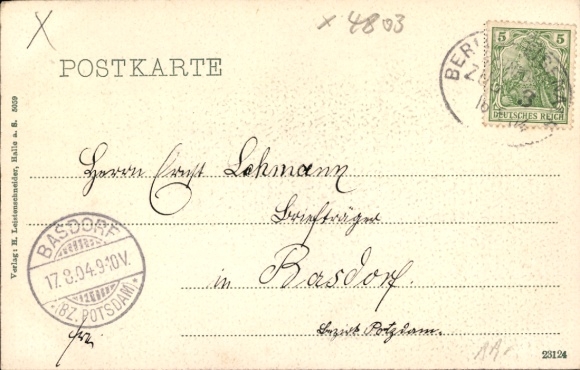 × 4803
POSTKARTE
BERLIN
5
DEUTSCHES REICH
Herrn Ernst Lehmann
Briefträger
in Basdorf.
Bezirk Potsdam.
BASDORF
17.8.04.9-10V.
*(BZ. POTSDAM)*
Verlag: H. Leistenschneider, Halle a. S. 5059
23124